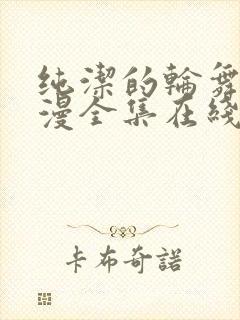 纯潔的輪舞
漫全集在綫
卡布奇諾